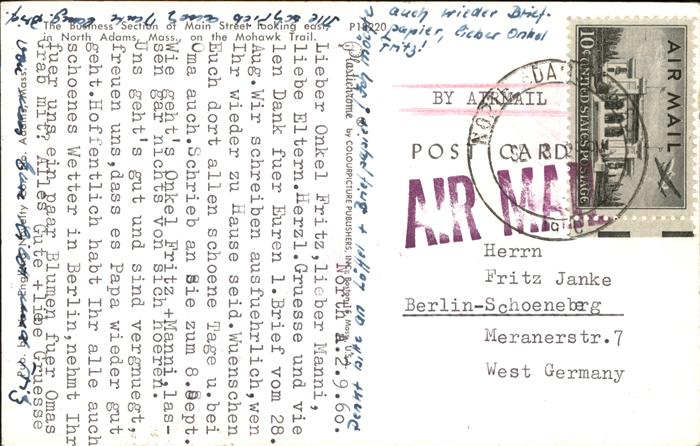 The Business Section of Main Street looking east
in North Adams, Mass., on the Mohawk Trail.
P18720
auch wieder Brief-
papier, lieber Onkel
Fritz!
BY AIRMAIL
POST CARD
AIR MAIL
AIR MAIL
10¢ UNITED STATES POSTAGE
Plastichrome by COLOURPICTURE PUBLISHERS, INC., Boston 15, Mass., U.S.A.
North A. 2.9.60.
Lieber Onkel Fritz, lieber Manni,
liebe Eltern. Herzl. Gruesse und vie
len Dank fuer Euren l. Brief vom 28.
Aug. Wir schreiben ausfuehrlich, wen
Ihr wieder zu Hause seid. Wuenschen
Euch dort allen schoene Tage u. bei
Oma auch. Schrieb an Sie zum 8. Sept.
Wie geht's Onkel Fritz + Manni, las-
sen gar nichts von sich hoeren.
Uns geht's gut und sind vergnuegt,
freuen uns, dass es Papa wieder gut
geht. Hoffentlich habt Ihr alle auch
schoenes Wetter in Berlin, nehmt Ihr
fuer uns ein paar Blumen fuer Omas
Grab mit. Alles Gute + liebe Gruesse
Herrn
Fritz Janke
Berlin-Schoeneberg
Meranerstr. 7
West Germany